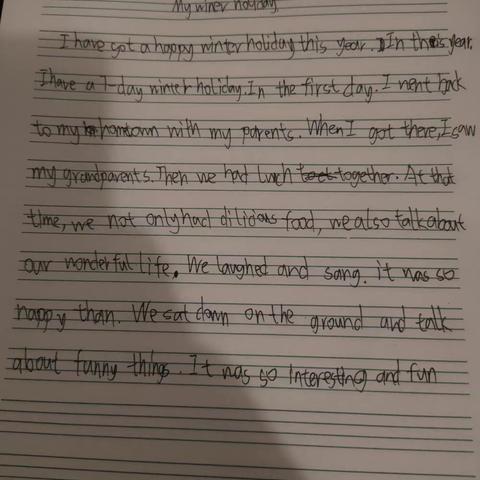 My winer holyday.
I have got a happy winter holiday this year. In this year,
I have a 7-day winter holiday. In the first day. I went back
to my hometown with my parents. When I got there, I saw
my grandparents. Then we had lunch together. At that
time, we not only had dilicious food, we also talk about
our wonderful life. We laughed and sang. it was so
happy than. We sat down on the ground and talk
about funny things. It was so interesting and fun